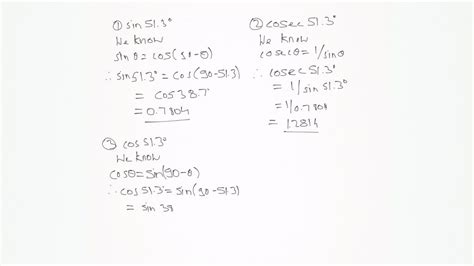 ① sin 51.3°
We know
sin θ = cos(90-θ)
∴ sin 51.3° = cos(90-51.3)
= cos 38.7
= 0.7804
② cosec 51.3°
We know
cosec θ = 1/sin θ
∴ cosec 51.3°
= 1/sin 51.3°
= 1/0.7804
= 1.2814
③ cos 51.3°
We know
cos θ = sin(90-θ)
∴ cos 51.3° = sin(90-51.3)
= sin 38